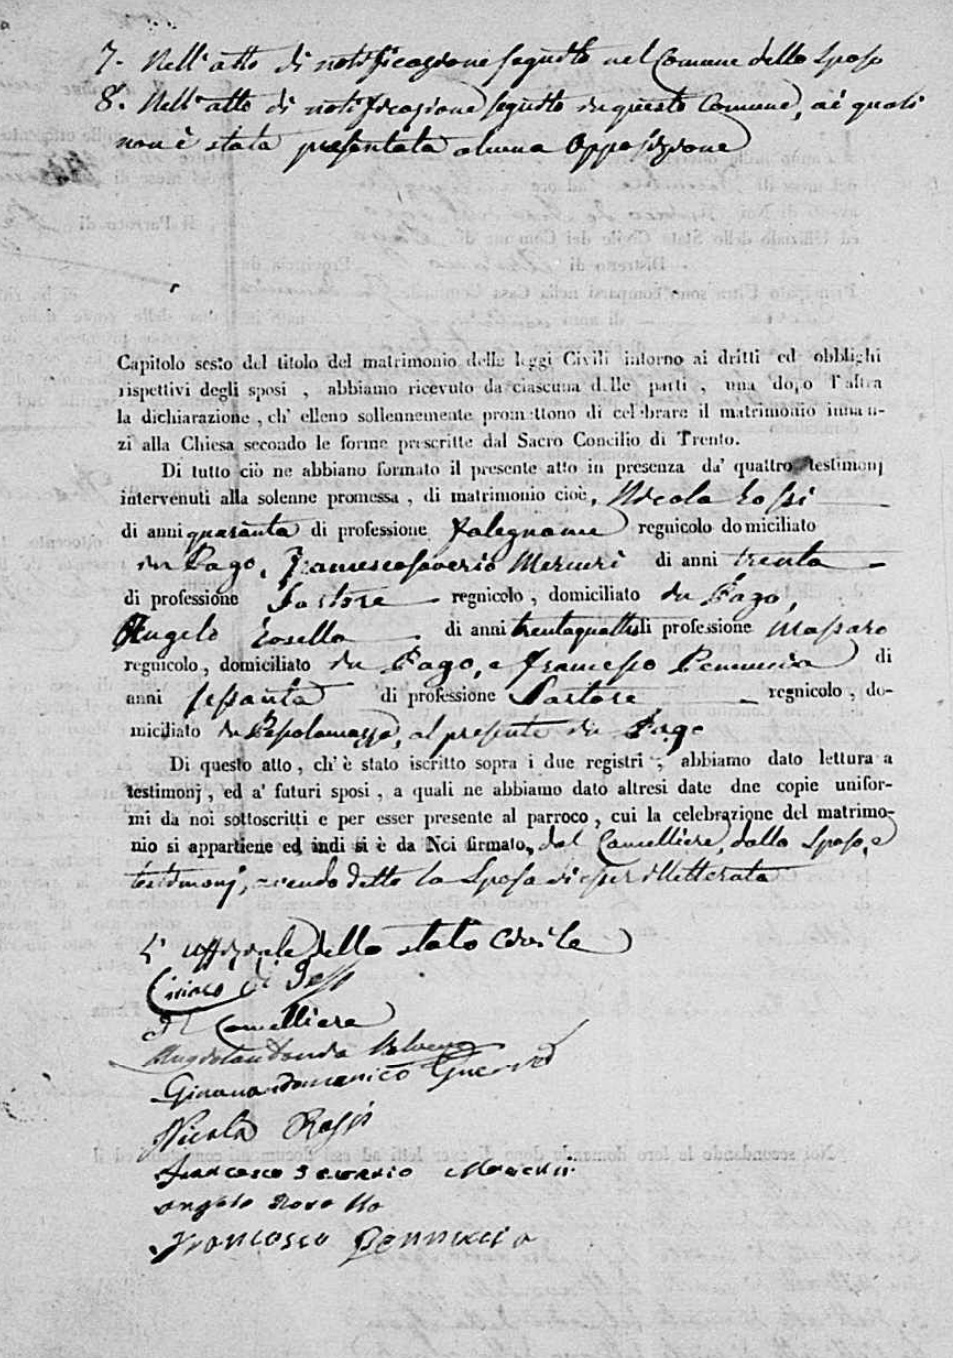 7. Nell'atto di notificazione seguito nel Comune dello Sposo
8. Nell'atto di notificazione seguito in questo Comune, ai quali
non è stata presentata alcuna Opposizione
Capitolo sesto del titolo del matrimonio delle leggi Civili intorno ai dritti ed obblighi
rispettivi degli sposi , abbiamo ricevuto da ciascuna delle parti , una dopo l'altra
la dichiarazione , ch' elleno sollennemente promettono di celebrare il matrimonio innan-
zi alla Chiesa secondo le forme prescritte dal Sacro Concilio di Trento.
Di tutto ciò ne abbiano formato il presente atto in presenza da' quattro testimonj
intervenuti alla solenne promessa , di matrimonio cioè, Nicola Rossi
di anni quaranta di professione Falegname regnicolo domiciliato
in Pago, Francescosaverio Mercuri di anni trenta
di professione Sartore regnicolo , domiciliato in Pago,
Angelo Rosella di anni trentaquattro di professione Massaro
regnicolo , domiciliato in Pago, e Francesco Pennuccia di
anni sessanta di professione Sartore regnicolo , do-
miciliato in Pesolamazza, al presente in Pago
Di questo atto , ch' è stato iscritto sopra i due registri , abbiamo dato lettura a
testimonj , ed a' futuri sposi , a quali ne abbiamo dato altresì date dne copie unifor-
mi da noi sottoscritti e per esser presente al parroco , cui la celebrazione del matrimo-
nio si appartiene ed indi si è da Noi firmato, dal Cancelliere, dallo Sposo, e
testimonj, avendo detto la Sposa di esser illetterata
L' uffiziale dello stato Civile
Ciriaco
Il Cancelliere
Giovannidomenico
Nicola Rossi
Francesco Saverio Mercuri
Angelo Rosella
Francesco Pennuccia